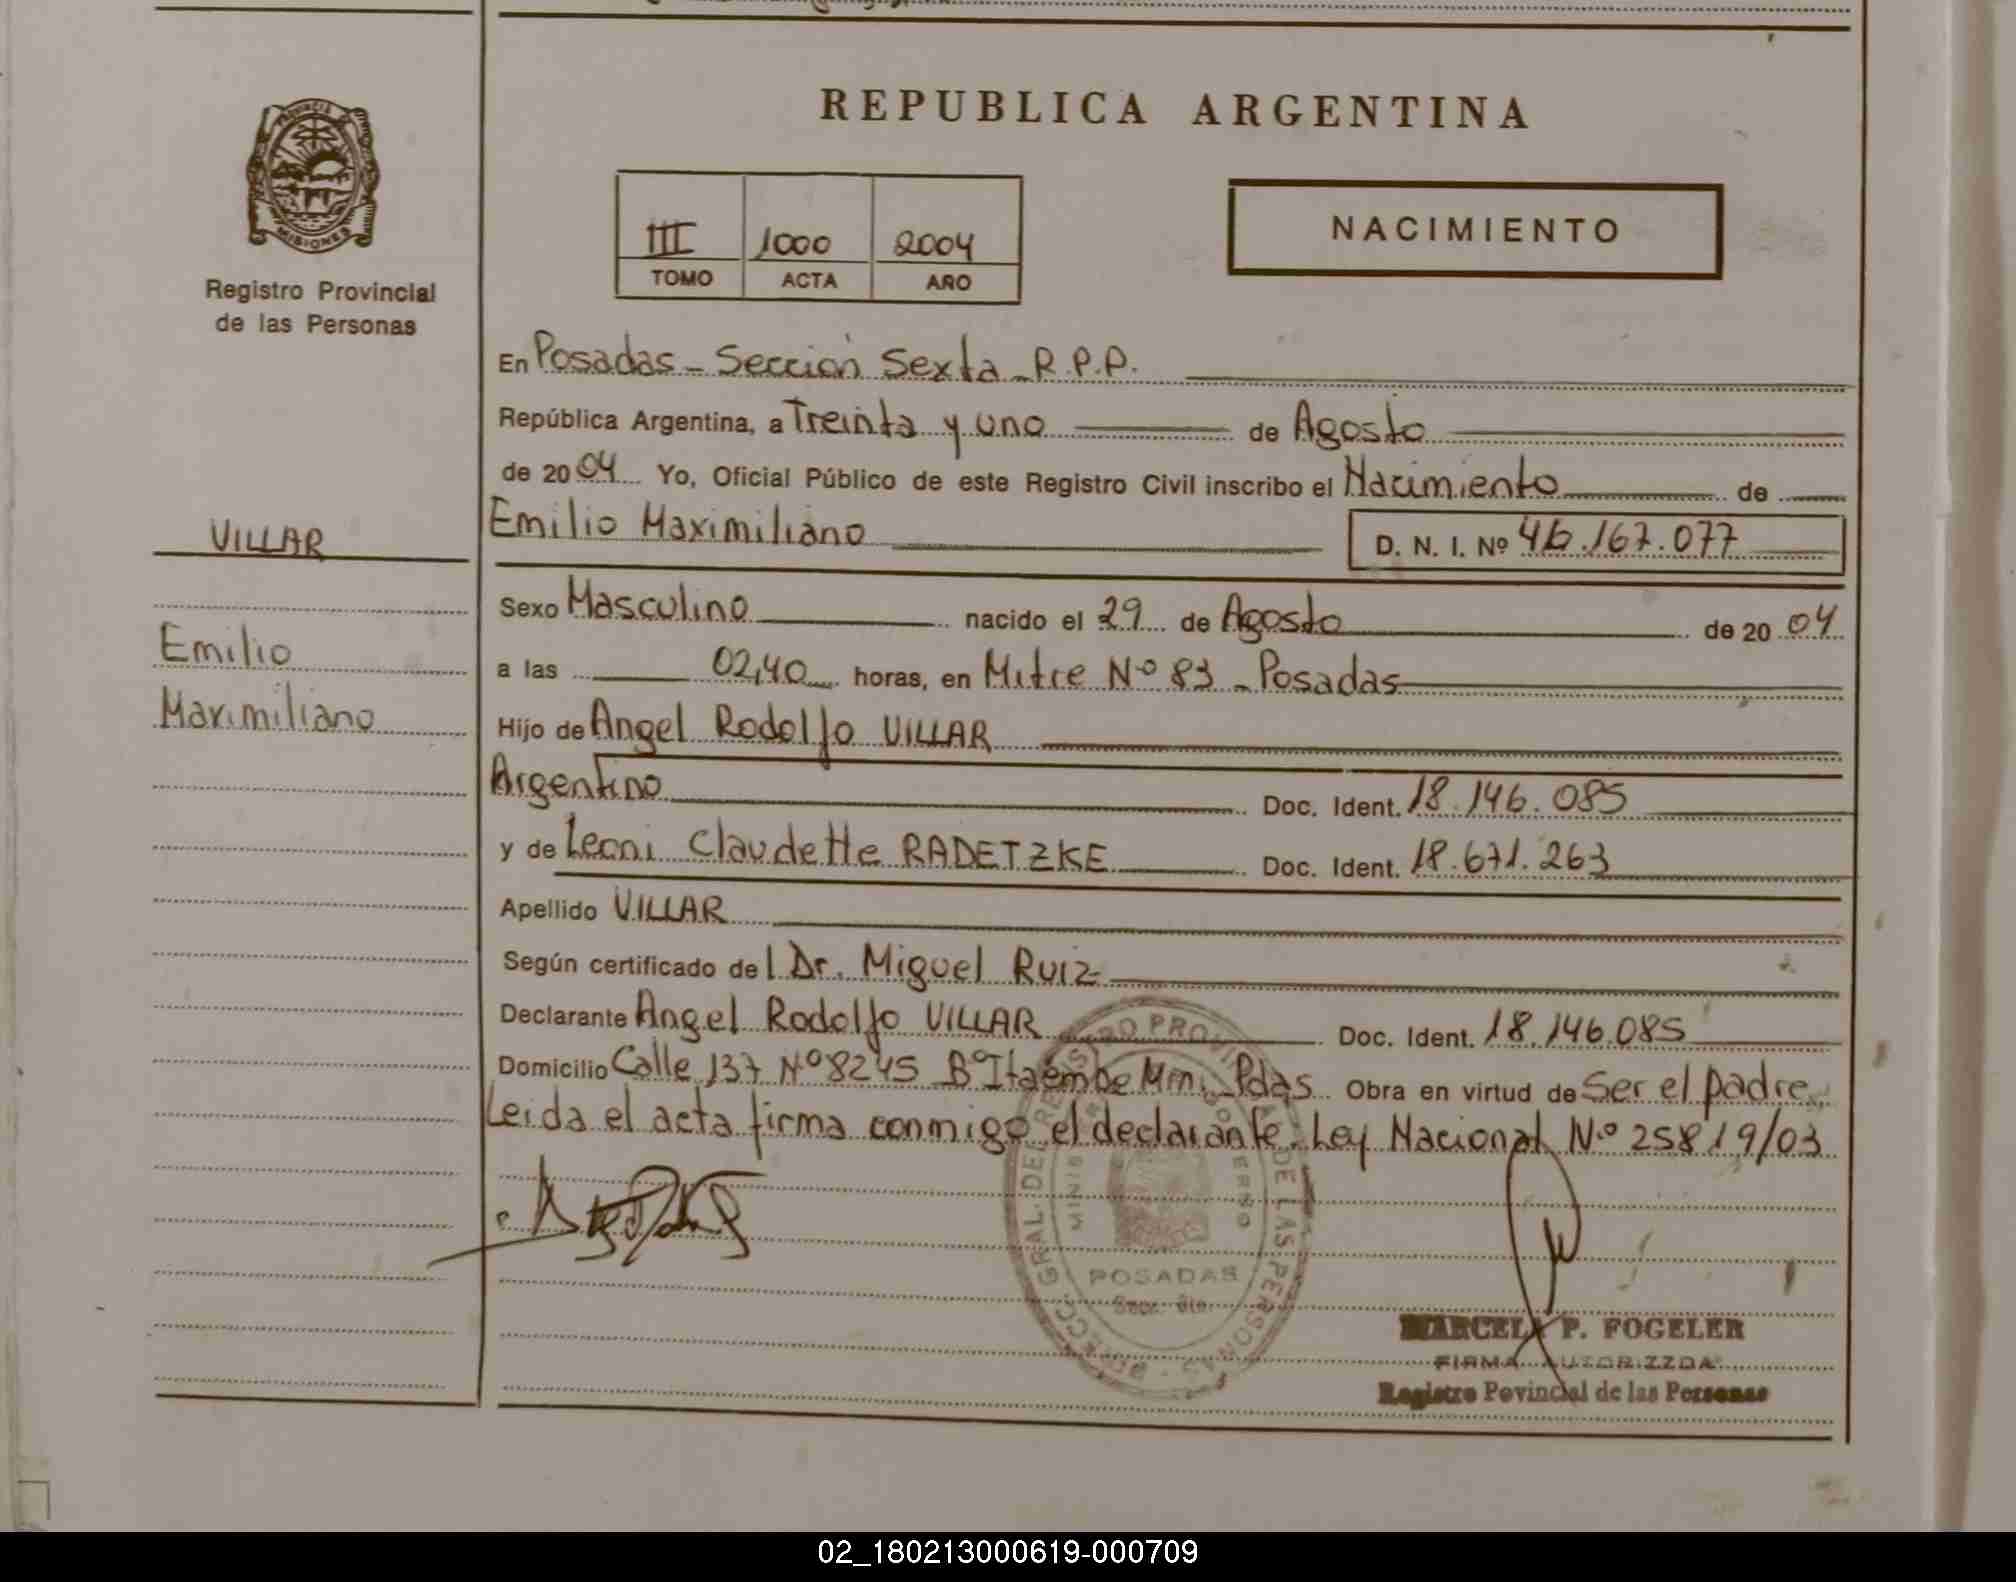 REPUBLICA ARGENTINA
PROVINCIA
MISIONES
Registro Provincial
de las Personas
III 1000 2004
TOMO ACTA AÑO
NACIMIENTO
En Posadas - Sección Sexta - R.P.P.
República Argentina, a Treinta y uno de Agosto
de 2004 Yo, Oficial Público de este Registro Civil inscribo el Nacimiento de
VILLAR
Emilio Maximiliano D. N. I. Nº 46.167.077
Sexo Masculino nacido el 29 de Agosto de 2004
Emilio
a las 02,40 horas, en Mitre Nº 83 - Posadas
Maximiliano
Hijo de Angel Rodolfo VILLAR
Argentino Doc. Ident. 18.146.085
y de Leoni Claudette RADETZKE Doc. Ident. 18.671.263
Apellido VILLAR
Según certificado del Dr. Miguel Ruiz
Declarante Angel Rodolfo VILLAR Doc. Ident. 18.146.085
Domicilio Calle 137 Nº 8245 Bº Itaembe Mní Pdas Obra en virtud de Ser el padre
Leida el acta firma conmigo el declarante. Ley Nacional Nº 25819/03
DIRECC. GRAL. DEL REGISTRO PROVINCIAL DE LAS PERSONAS
POSADAS
MARCELA P. FOGELER
FIRMA AUTORIZZDA
Registro Povincial de las Personas
02_180213000619-000709